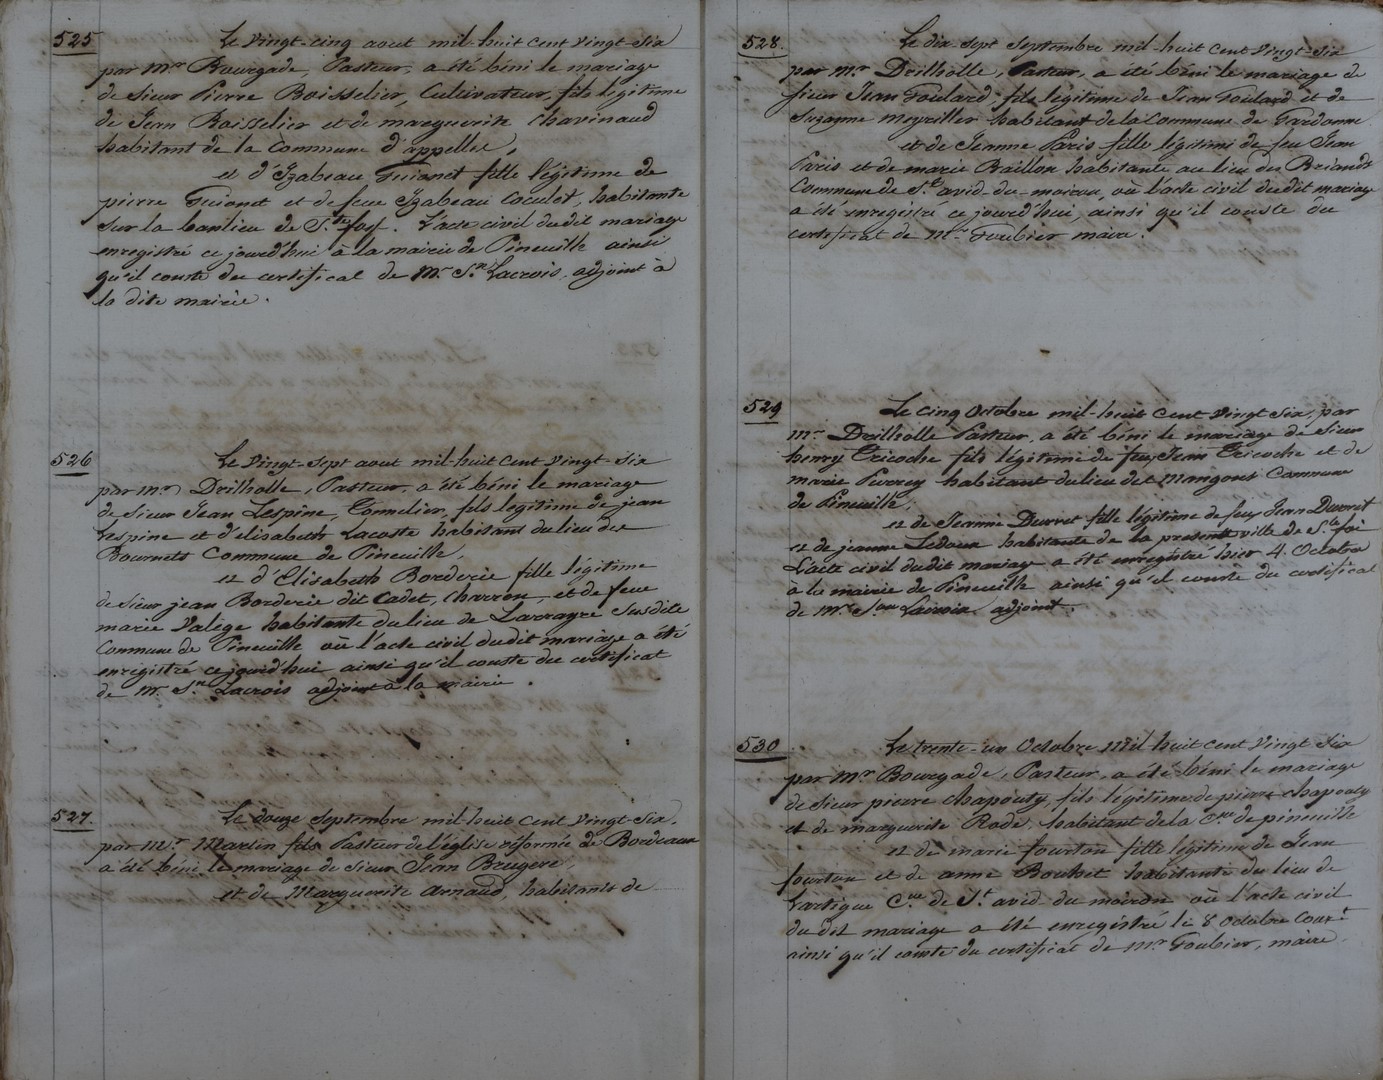 525
Le vingt-cinq aout mil-huit cent vingt-six
par mr Bourgade, Pasteur, a été béni le mariage
de Sieur Pierre Boisselier, Cultivateur, fils légitime
de Jean Boisselier et de marguerite Chavinaud
habitant de la Commune d'appelles,
et d'Izabeau Guionet fille légitime de
pierre Guionet et de feue Izabeau Coculet, habitante
sur la banlieu de Ste foy. L'acte civil du dit mariage
enregistré ce jourd'hui à la mairie de Pineuille ainsi
qu'il conste du certificat de Mr Sn Lacroix, adjoint à
la dite mairie.
526
Le Vingt-Sept aout mil-huit cent vingt-six
par mr Drilholle, Pasteur, a été béni le mariage
de Sieur Jean Lespine, Tonnelier, fils legitime de jean
Lespine et d'élisabeth Lacoste habitant du lieu des
Bournets Commune de Pineuille,
et d'Elisabeth Borderie fille légitime
de Sieur jean Borderie dit Cadet, Charron, et de feue
marie Valège habitante du lieu de Larrayre Susdite
Commune de Pineuille où l'acte civil du dit mariage a été
enregistré ce jourd'hui ainsi qu'il conste du certificat
de Mr Sn Lacroix adjoint à la mairie.
527.
Le douze Septembre mil-huit cent vingt-Six,
par Mr. Martin fils Pasteur de l'église réformée de Bordeaux
a été béni le mariage de Sieur Jean Brugere
et de Marguerite Arnaud, habitants de
528.
Le dix-sept Septembre mil-huit cent vingt-six
par mr Drilholle, Pasteur, a été béni le mariage de
Sieur Jean Goulard, fils légitime de Jean Goulard et de
Suzanne meyriller habitant de la Commune de Gardonne
et de Jeanne Paris fille légitime de feu Jean
Paris et de marie Braillon habitante au lieu des Briands
Commune de St avid du-moiron, où l'acte civil du dit mariage
a été enregistré ce jourd'hui, ainsi qu'il conste du
certificat de Mr Goubier maire.
529
Le cinq Octobre mil-huit cent vingt six, par
mr Drilholle Pasteur, a été béni le mariage de Sieur
henry Tricoche fils légitime de feu Jean Tricoche et de
marie Perrey habitant du lieu des mangons Commune
de Pineuille,
et de Jeanne Durret fille légitime de feu Jean Durret
et de jeanne Ledoux habitante de la presente ville de Ste foi
L'acte civil du dit mariage a été enregistré hier 4. Octobre
à la mairie de Pineuille ainsi qu'il conste du certificat
de Mr Sn Lacroix adjoint.
530
Le trente-un Octobre Mil huit cent vingt six
par Mr Bourgade, Pasteur, a été béni le mariage
de Sieur pierre Chapouty, fils légitime de pierre Chapouty
et de marguerite Rode, habitant de la Cne de pineuille
et de marie fourtou fille légitime de Jean
fourtou et de anne Bouhet habitante du lieu de
Lartigue Cne de St avid du moiron où l'acte civil
du dit mariage a été enregistré le 8 Octobre Courrt
ainsi qu'il conste du certificat de Mr Goubier, maire.